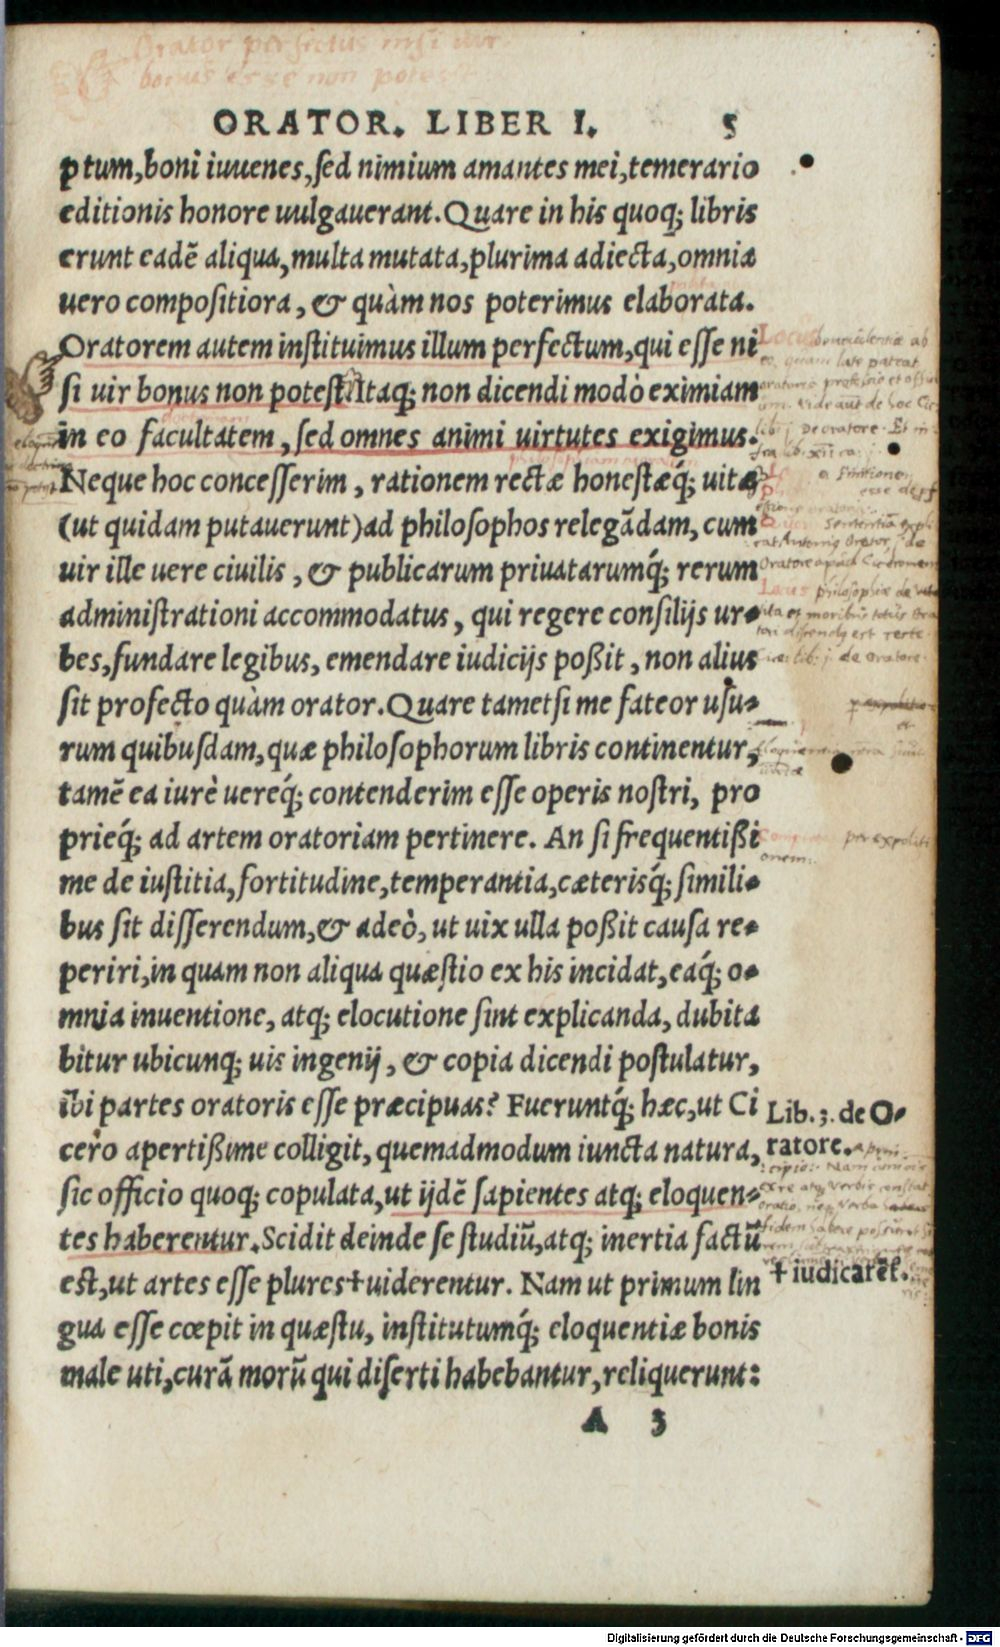 Orator perfectus nisi vir
bonus esse non potest
ORATOR. LIBER I. 5
ptum, boni iuuenes, sed nimium amantes mei, temerario
editionis honore uulgauerant. Quare in his quoq; libris
erunt eadē aliqua, multa mutata, plurima adiecta, omnia
uero compositiora, & quàm nos poterimus elaborata.
Oratorem autem instituimus illum perfectum, qui esse ni
si uir bonus non potest. Itaq; non dicendi modò eximiam
in eo facultatem, sed omnes animi uirtutes exigimus.
Neque hoc concesserim, rationem rectæ honestæq́; uitæ
(ut quidam putauerunt) ad philosophos relegādam, cum
uir ille uere ciuilis, & publicarum priuatarumq́; rerum
administrationi accommodatus, qui regere consilijs ur-
bes, fundare legibus, emendare iudicijs poßit, non alius
sit profecto quàm orator. Quare tametsi me fateor usu-
rum quibusdam, quæ philosophorum libris continentur,
tamē ea iurè uereq́; contenderim esse operis nostri, pro
prieq́; ad artem oratoriam pertinere. An si frequentißi
me de iustitia, fortitudine, temperantia, cæterisq́; simili-
bus sit disserendum, & adeò, ut uix ulla poßit causa re-
periri, in quam non aliqua quæstio ex his incidat, eaq́; o-
mnia inuentione, atq; elocutione sint explicanda, dubita
bitur ubicunq; uis ingenij, & copia dicendi postulatur,
ibi partes oratoris esse præcipuas? Fueruntq́; hæc, ut Ci
cero apertißime colligit, quemadmodum iuncta natura,
sic officio quoq; copulata, ut ijdē sapientes atq; eloquen-
tes haberentur. Scidit deinde se studiū, atq; inertia factū
est, ut artes esse plures + uiderentur. Nam ut primum lin
gua esse cœpit in quæstu, institutumq́; eloquentiæ bonis
male uti, curā morū qui diserti habebantur, reliquerunt:
A 3
Lib. 3. de O-
ratore.
+ iudicarēt.
Locus
eo, quam late pateat
oratoris professio et
lib. j. De oratore. Et in
fra lib. xii
Sententiā
Orator. j. de
Oratore apud Ciceronem
Locus philosophiæ de
vita et moribus totus
est recte.
lib. j. de oratore.
per expoliti
onem:
Digitalisierung gefördert durch die Deutsche Forschungsgemeinschaft - DFG